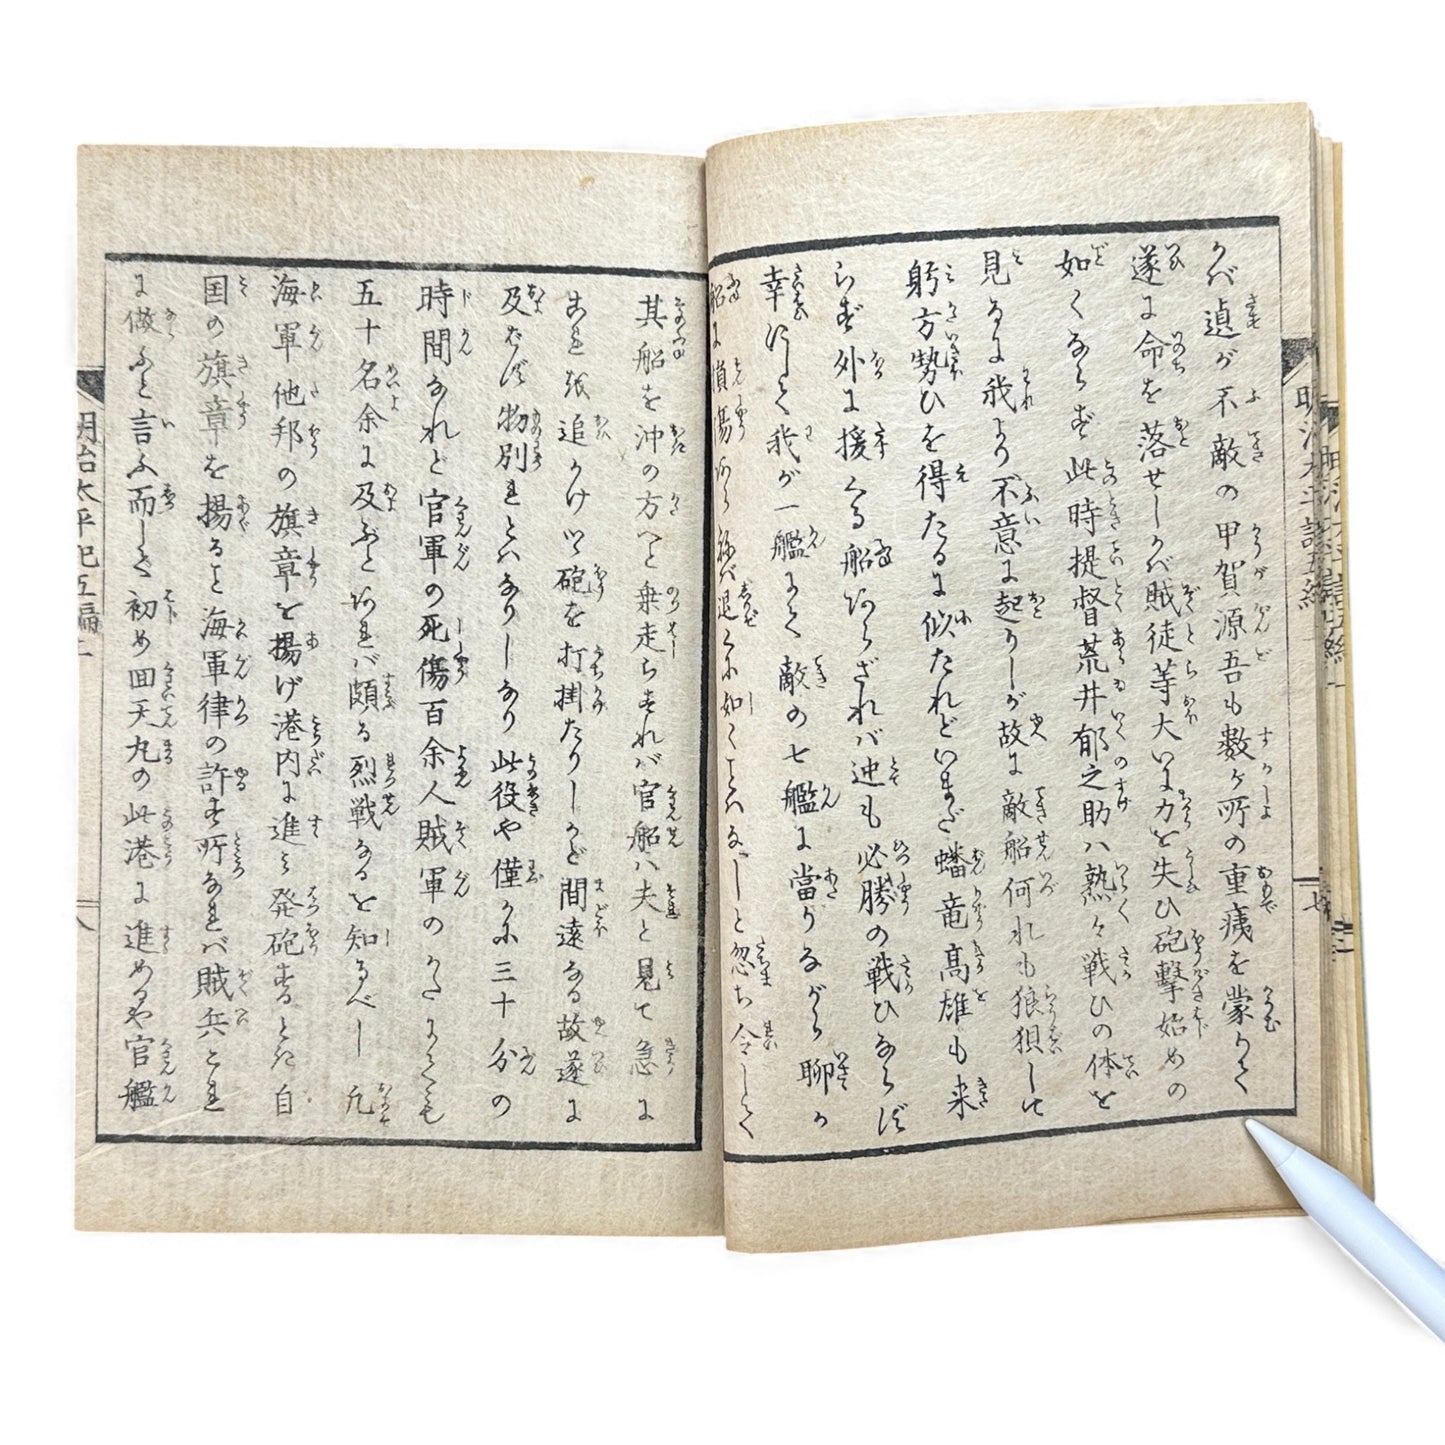 かバ遉が不敵の甲賀源吾も數ヶ所の重痍を蒙りて
遂に命を落せしかバ賊徒等大いに力を失ひ砲撃始めの
如くならず此時提督荒井郁之助ハ熟々戦ひの体を
見るに我より不意に起りしが故に敵船何れも狼狽して
躬方勢ひを得たるに似たれどいまだ蟠竜高雄も来
らず外に援くる船あらざれバ迚も必勝の戦ひならず
幸にして我が一艦にて敵の七艦に當りながら聊か
船に損傷あら ねバ退くに如くことハなしと忽ち令して
其船を沖の方へと乗走らすれバ官船ハ夫と見て急に
これを追かけつゝ砲を打掛たりしかど間遠なる故遂に
及ばず物別れとハなりしなり此役や僅かに三十分の
時間なれど官軍の死傷百余人賊軍のかたにても
五十名余に及ぶとあれバ頗る烈戦なるを知るべし凡
海軍他邦の旗章を揚げ港内に進ミ発砲するとき自
国の旗章を揚ること海軍律の許す所なれバ賊兵これ
に做ふと言ふ而して初め回天丸の此港に進めるや官艦
明治太平記五編 一
七
明治太平記五編 二
八